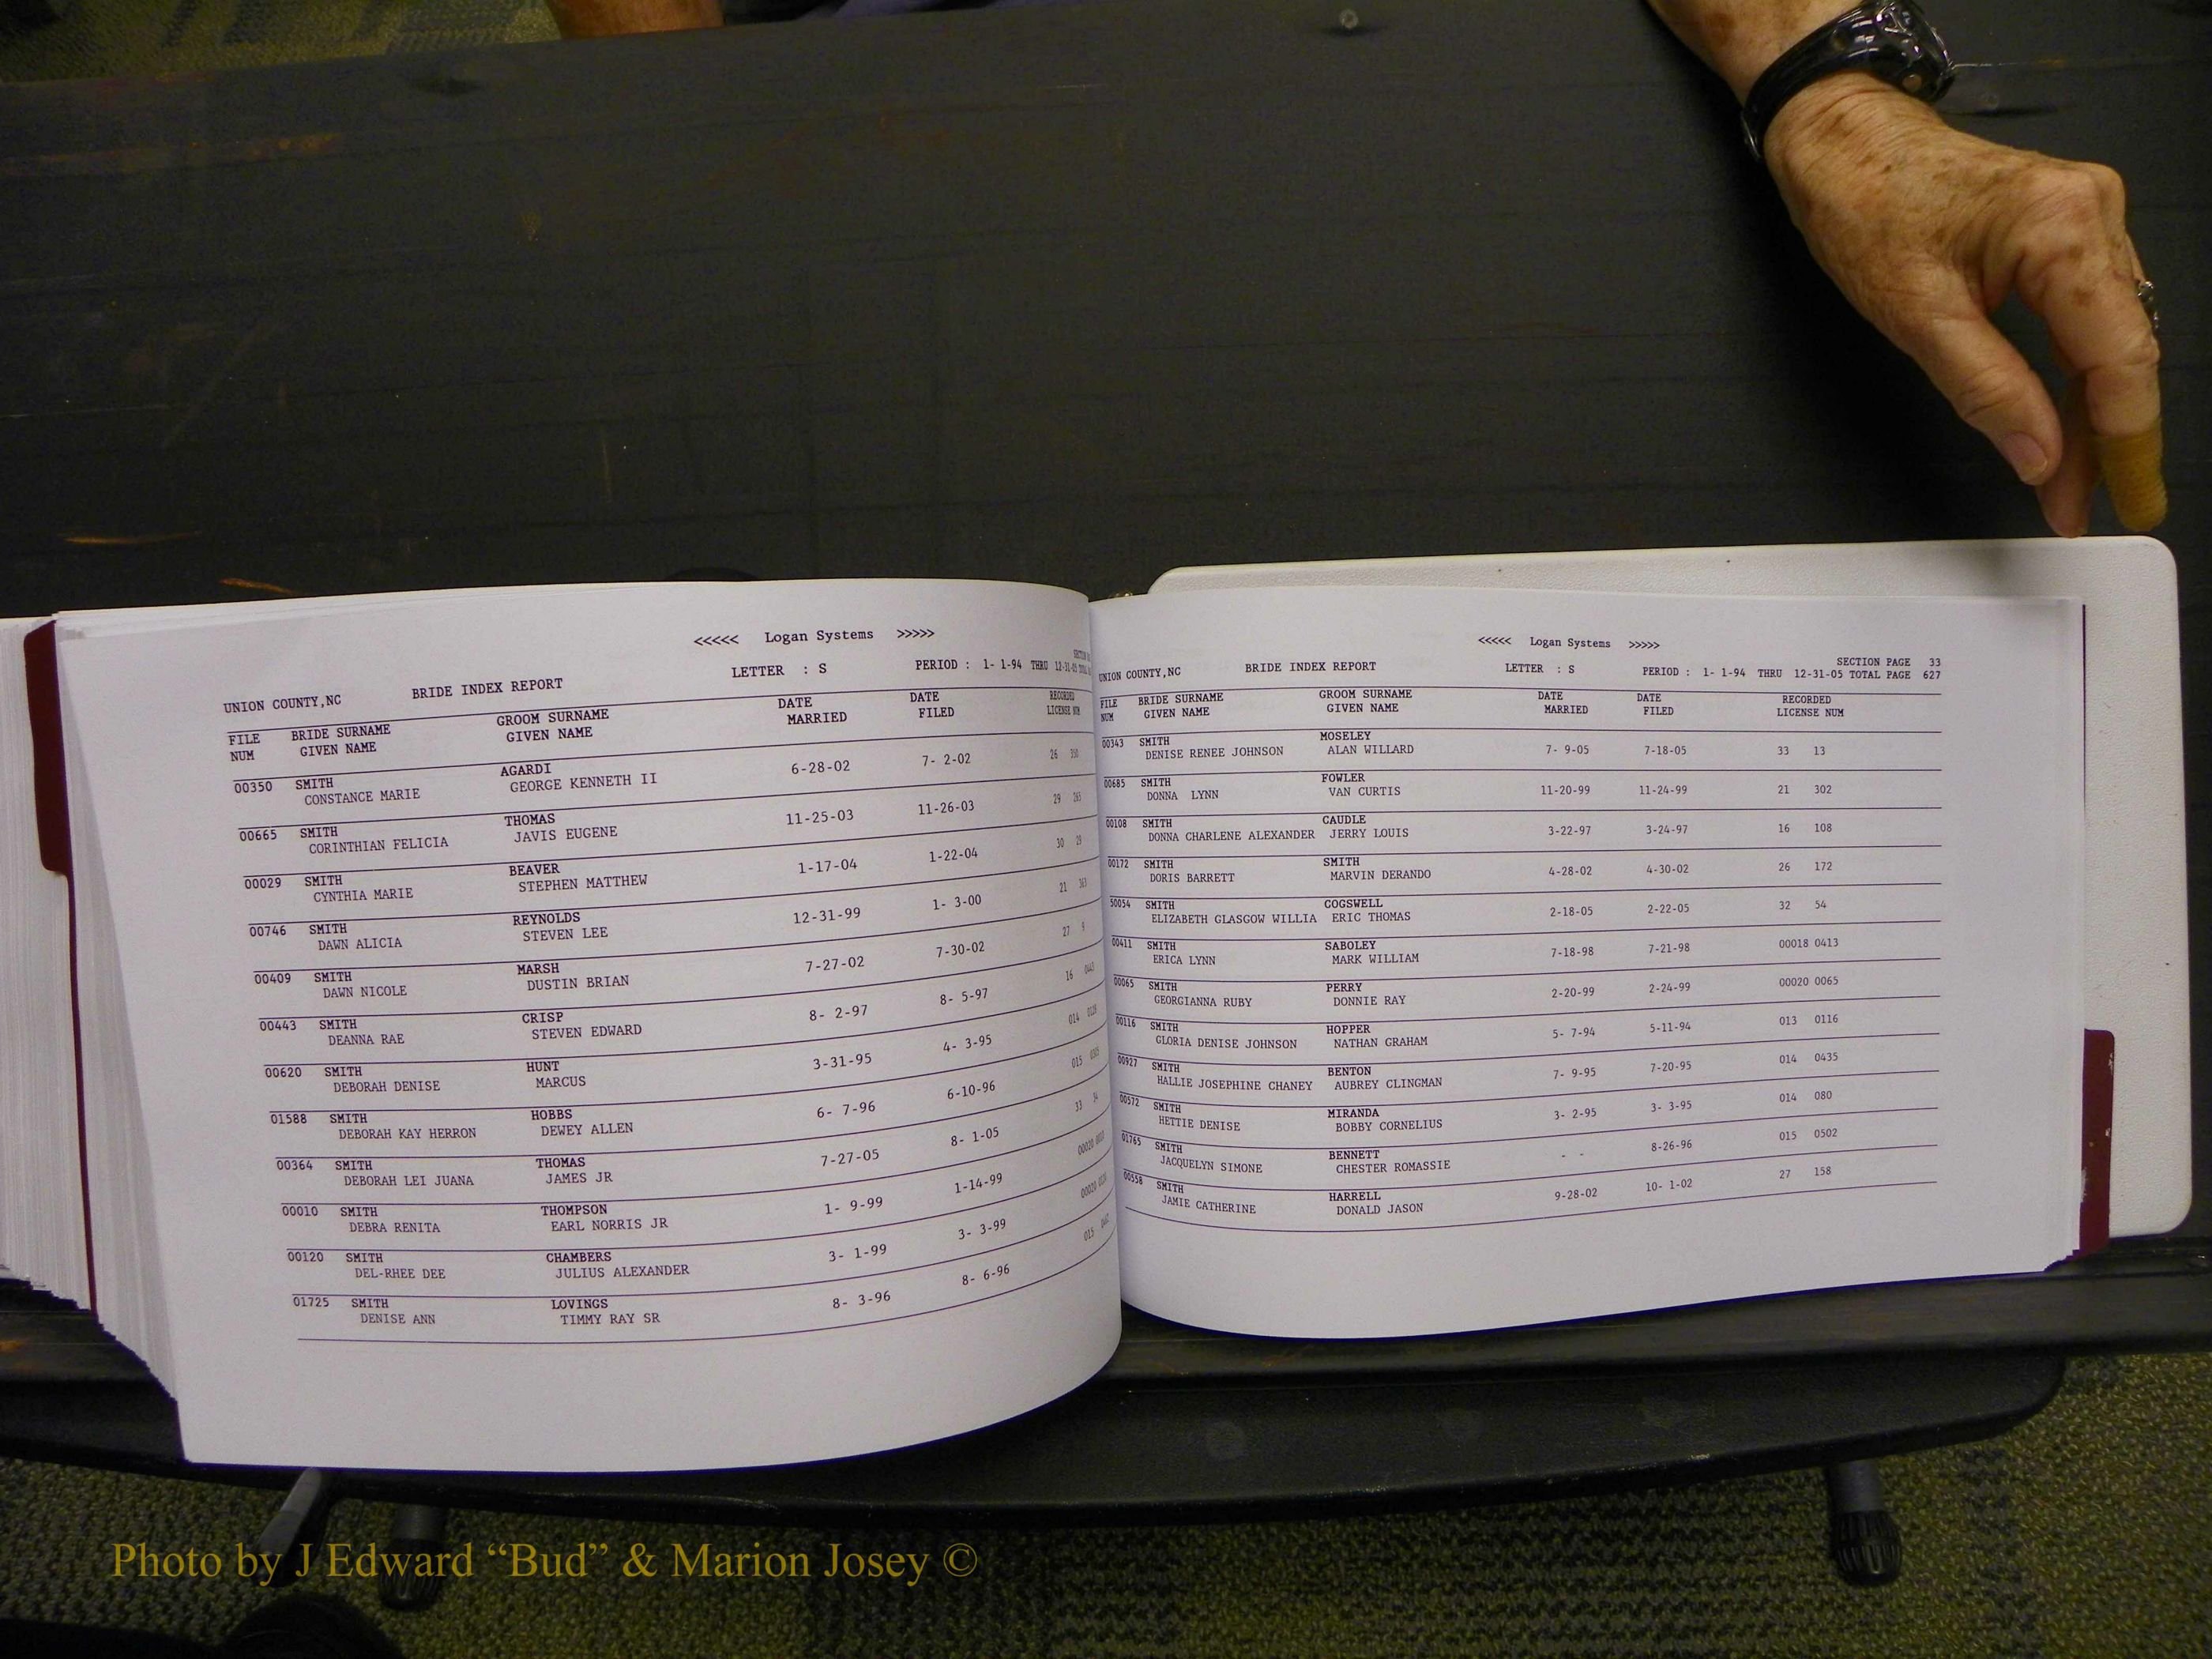 <<<<< Logan Systems >>>>>
UNION COUNTY,NC BRIDE INDEX REPORT LETTER : S PERIOD : 1- 1-94 THRU 12-31-05
FILE BRIDE SURNAME GROOM SURNAME DATE DATE RECORDED
NUM GIVEN NAME GIVEN NAME MARRIED FILED LICENSE NUM
00350 SMITH AGARDI 6-28-02 7- 2-02 26 350
CONSTANCE MARIE GEORGE KENNETH II
00665 SMITH THOMAS 11-25-03 11-26-03 29
CORINTHIAN FELICIA JAVIS EUGENE
00029 SMITH BEAVER 1-17-04 1-22-04 30 29
CYNTHIA MARIE STEPHEN MATTHEW
00746 SMITH REYNOLDS 12-31-99 1- 3-00 21
DAWN ALICIA STEVEN LEE
00409 SMITH MARSH 7-27-02 7-30-02 27 9
DAWN NICOLE DUSTIN BRIAN
00443 SMITH CRISP 8- 2-97 8- 5-97 16
DEANNA RAE STEVEN EDWARD
00620 SMITH HUNT 3-31-95 4- 3-95 014
DEBORAH DENISE MARCUS
01588 SMITH HOBBS 6- 7-96 6-10-96 015
DEBORAH KAY HERRON DEWEY ALLEN
00364 SMITH THOMAS 7-27-05 8- 1-05 33
DEBORAH LEI JUANA JAMES JR
00010 SMITH THOMPSON 1- 9-99 1-14-99 00020
DEBRA RENITA EARL NORRIS JR
00120 SMITH CHAMBERS 3- 1-99 3- 3-99 00020
DEL-RHEE DEE JULIUS ALEXANDER
01725 SMITH LOVINGS 8- 3-96 8- 6-96 015
DENISE ANN TIMMY RAY SR
<<<<< Logan Systems >>>>>
SECTION PAGE 33
UNION COUNTY,NC BRIDE INDEX REPORT LETTER : S PERIOD : 1- 1-94 THRU 12-31-05 TOTAL PAGE 627
FILE BRIDE SURNAME GROOM SURNAME DATE DATE RECORDED
NUM GIVEN NAME GIVEN NAME MARRIED FILED LICENSE NUM
00343 SMITH MOSELEY 7- 9-05 7-18-05 33 13
DENISE RENEE JOHNSON ALAN WILLARD
00685 SMITH FOWLER 11-20-99 11-24-99 21 302
DONNA LYNN VAN CURTIS
00108 SMITH CAUDLE 3-22-97 3-24-97 16 108
DONNA CHARLENE ALEXANDER JERRY LOUIS
00172 SMITH SMITH 4-28-02 4-30-02 26 172
DORIS BARRETT MARVIN DERANDO
50054 SMITH COGSWELL 2-18-05 2-22-05 32 54
ELIZABETH GLASGOW WILLIA ERIC THOMAS
00411 SMITH SABOLEY 7-18-98 7-21-98 00018 0413
ERICA LYNN MARK WILLIAM
00065 SMITH PERRY 2-20-99 2-24-99 00020 0065
GEORGIANNA RUBY DONNIE RAY
00116 SMITH HOPPER 5- 7-94 5-11-94 013 0116
GLORIA DENISE JOHNSON NATHAN GRAHAM
00927 SMITH BENTON 7- 9-95 7-20-95 014 0435
HALLIE JOSEPHINE CHANEY AUBREY CLINGMAN
00572 SMITH MIRANDA 3- 2-95 3- 3-95 014 080
HETTIE DENISE BOBBY CORNELIUS
01765 SMITH BENNETT - - 8-26-96 015 0502
JACQUELYN SIMONE CHESTER ROMASSIE
00558 SMITH HARRELL 9-28-02 10- 1-02 27 158
JAMIE CATHERINE DONALD JASON
Photo by J Edward “Bud” & Marion Josey ©